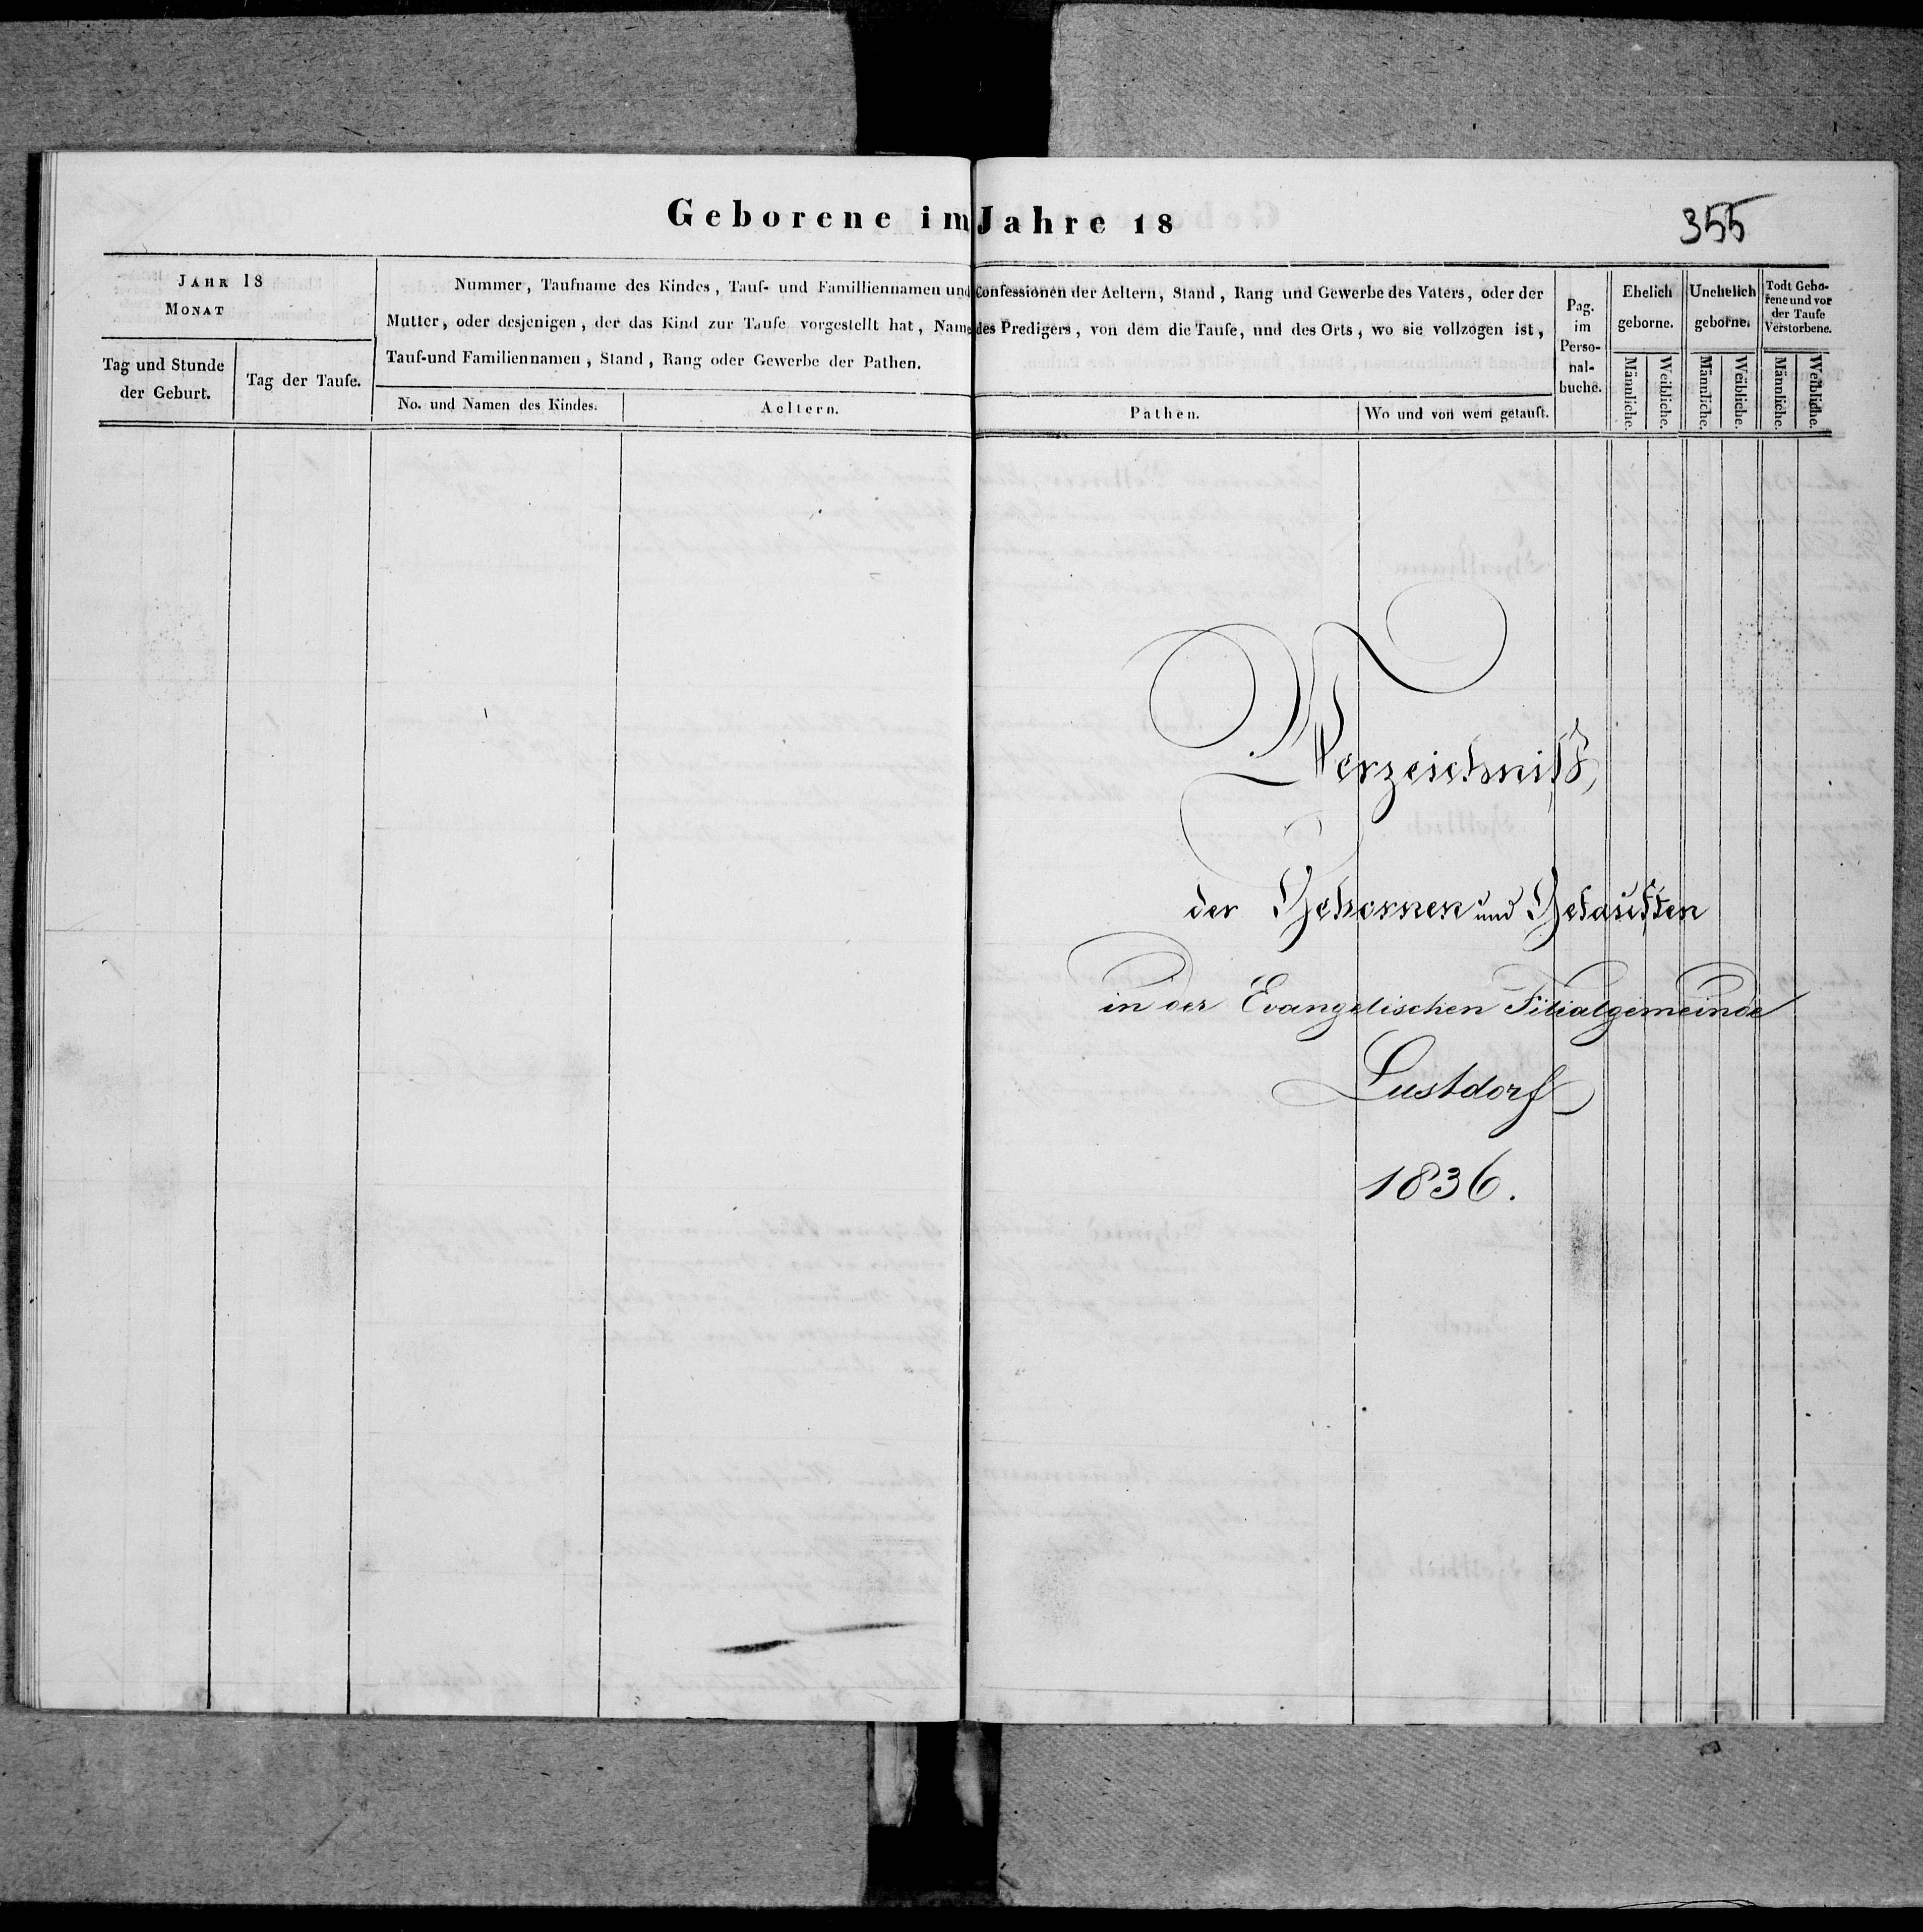 Geborene im Jahre 18
355
JAHR 18
MONAT
Tag und Stunde
der Geburt.
Tag der Taufe.
Nummer, Taufname des Kindes, Tauf- und Familliennamen und Confessionen der Aeltern, Stand, Rang und Gewerbe des Vaters, oder der
Mutter, oder desjenigen, der das Kind zur Taufe vorgestellt hat, Name des Predigers, von dem die Taufe, und des Orts, wo sie vollzogen ist,
Tauf-und Familiennamen, Stand, Rang oder Gewerbe der Pathen.
No. und Namen des Kindes.
Aeltern.
Pathen.
Wo und von wem getauft.
Pag.
im
Perso-
nal-
buche.
Ehelich
geborne.
Männliche.
Weibliche.
Unehelich
geborne.
Männliche.
Weibliche.
Todt Gebo-
rene und vor
der Taufe
Verstorbene.
Männliche.
Weibliche.
Verzeichniß
der Gebornen und Getauften
in der Evangelischen Filialgemeinde
Lustdorf
1836.